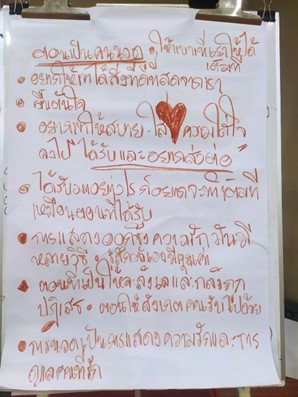 ตอนเป็นคนนวด ผู้ให้เบาเท่าที่เราให้ได้
เต็มที่
อยากให้เขาได้สิ่งที่ดีที่สุดจากเรา
ตื้นตันใจ
อยากเขาให้สบาย ใส่ ความใส่ใจ
ลงไป ได้รับและอยากส่งต่อ
ได้รับมาอย่างไรก็อยากจะทำเต็มที่
เหมือนตอนที่ได้รับ
การแสดงออกถึงความรักมันมี
หลายวิธี
ตอนที่เป็นให้จะลังเลและกลัวถูก
ปฏิเสธ ตอนให้สังเกตคนรับไปด้วย
การนวดเป็นการแสดงความรักและการ
ดูแลคนที่รัก